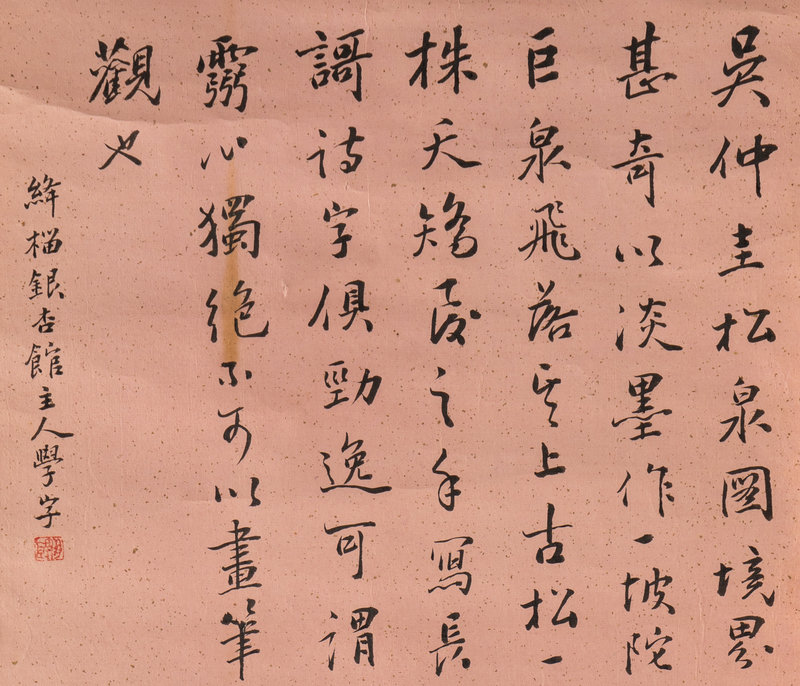 吳仲圭松泉圖境界
甚奇以淡墨作一坡陀
巨泉飛落其上古松一
株夭矯之手寫長
謌詩字俱勁逸可謂
心獨絕不可以畫筆
觀也
絳榴銀杏館主人學字